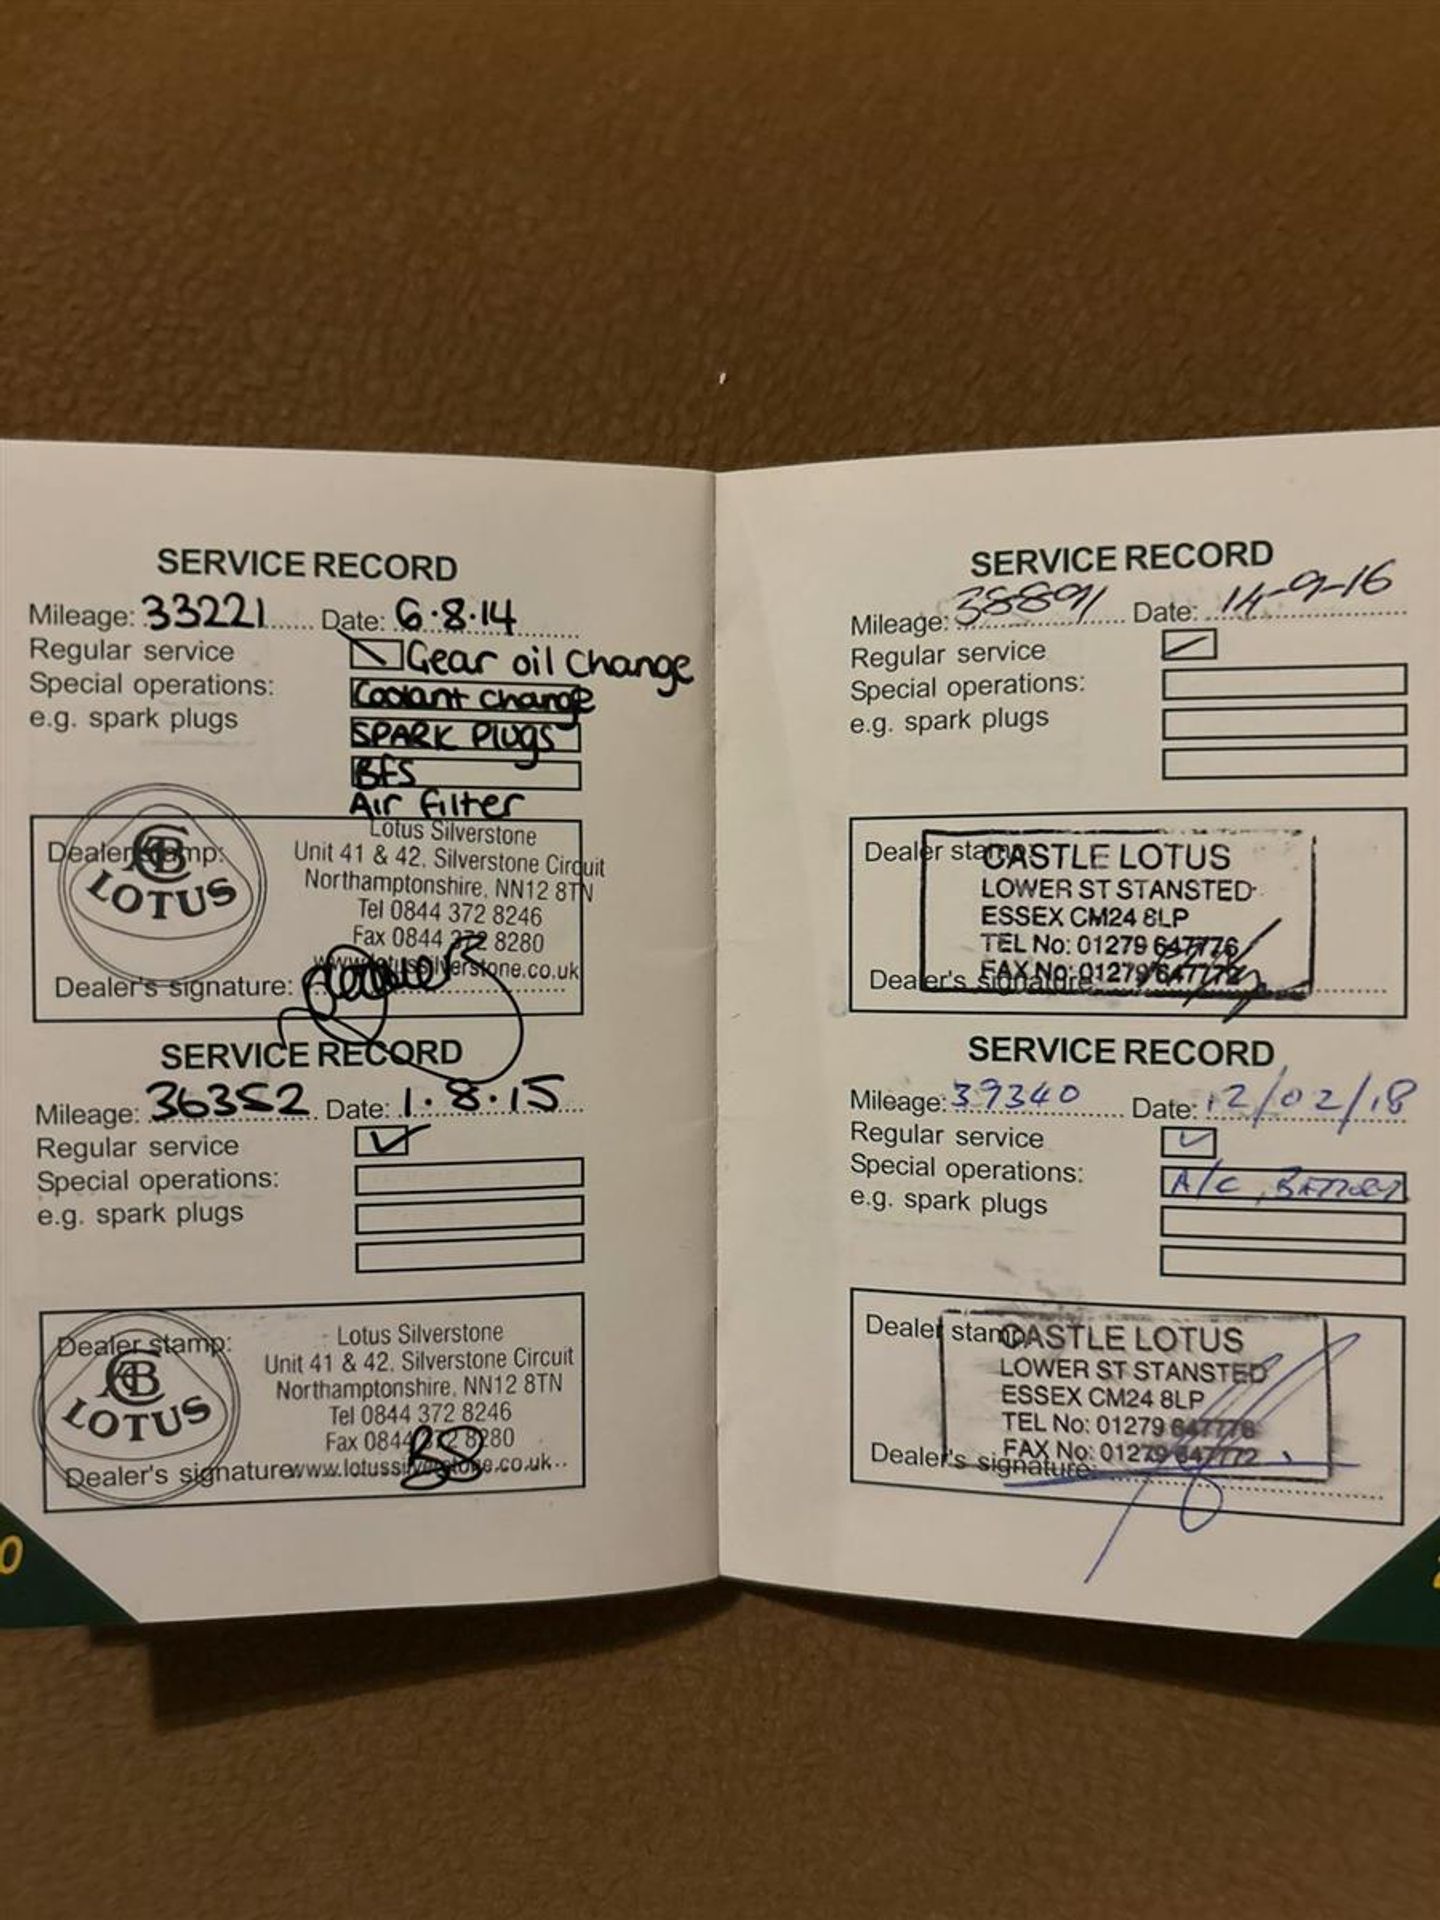 SERVICE RECORD
Mileage: 33221 Date: 6.8.14
Regular service Gear oil change
Special operations: Coolant change
e.g. spark plugs SPARK PLUGS
BFS
Air filter
Dealer stamp:
ACBC LOTUS
Lotus Silverstone
Unit 41 & 42. Silverstone Circuit
Northamptonshire, NN12 8TN
Tel 0844 372 8246
Fax 0844 372 8280
www.lotussilverstone.co.uk
Dealer's signature:
SERVICE RECORD
Mileage: 36352 Date: 1.8.15
Regular service
Special operations:
e.g. spark plugs
Dealer stamp:
ACBC LOTUS
Lotus Silverstone
Unit 41 & 42. Silverstone Circuit
Northamptonshire, NN12 8TN
Tel 0844 372 8246
Fax 0844 372 8280
www.lotussilverstone.co.uk
Dealer's signature
SERVICE RECORD
Mileage: 38891 Date: 14-9-16
Regular service
Special operations:
e.g. spark plugs
Dealer stamp:
CASTLE LOTUS
LOWER ST STANSTED
ESSEX CM24 8LP
TEL No: 01279 647776
FAX No: 01279 647772
Dealer's signature
SERVICE RECORD
Mileage: 39340 Date: 12/02/18
Regular service
Special operations: A/C, BATTERY
e.g. spark plugs
Dealer stamp
CASTLE LOTUS
LOWER ST STANSTED
ESSEX CM24 8LP
TEL No: 01279 647776
FAX No: 01279 647772
Dealer's signature: